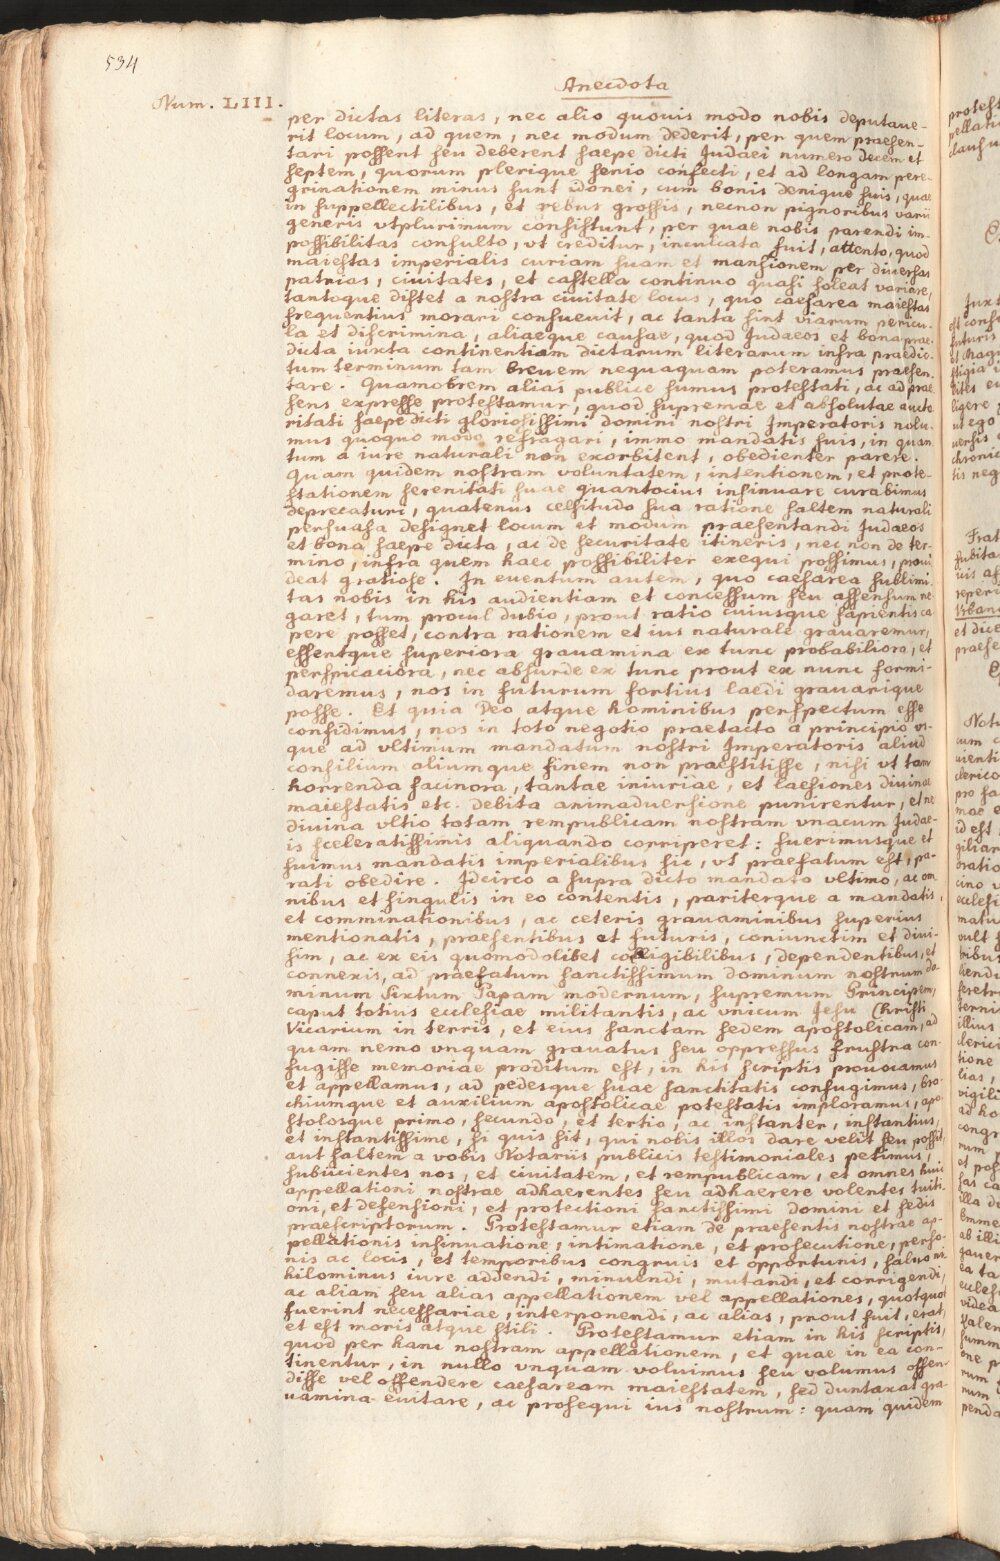 534
Anecdota
Num. LIII.
per dictas literas, nec alio quouis modo nobis deputaue-
rit locum, ad quem, nec modum dederit, per quem praesen-
tari possent seu deberent saepe dicti Judaei numero decem et
septem, quorum plerique senio confecti, et ad longam pere-
grinationem minus sunt idonei, cum bonis denique suis, quae
in suppellectilibus, et rebus grossis, necnon pignoribus varii
generis vtplurimum consistunt, per quae nobis parendi im-
possibilitas consulto, vt creditur, inculcata fuit, attento, quod
maiestas imperialis curiam suam et mansionem per diuersas
patrias, ciuitates, et castella continuo quasi soleat variare,
tantoque distet a nostra ciuitate locus, quo caesarea maiestas
frequentius morari consueuit, ac tanta sint viarum pericu-
la et discrimina, aliaeque causae, quod Judaeos et bona prae-
dicta iuxta continentiam dictarum literarum infra praedic-
tum terminum tam breuem nequaquam poteramus praesen-
tare. Quamobrem alias publice sumus protestati, ac ad prae-
sens expresse protestamur, quod supremae et absolutae aucto-
ritati saepe dicti gloriosissimi domini nostri Imperatoris nolu-
mus quoquo modo refragari, immo mandatis suis, in quan-
tum a iure naturali non exorbitent, obedienter parere.
Quam quidem nostram voluntatem, intentionem, et prote-
stationem serenitati suae quantocius insinuare curabimus
deprecaturi, quatenus celsitudo sua ratione saltem naturali
persuasa designet locum et modum praesentandi Judaeos
et bona saepe dicta, ac de securitate itineris, nec non de ter-
mino, infra quem haec possibiliter exequi possimus, proui-
deat gratiose. In euentum autem, quo caesarea sublimi-
tas nobis in his audientiam et concessum seu assensum ne-
garet, tum procul dubio, prout ratio cuiusque sapientis ca-
pere posset, contra rationem et ius naturale grauaremur,
essentque superiora grauamina ex tunc probabiliora, et
perspicaciora, nec absurde ex tunc prout ex nunc formi-
daremus, nos in futurum fortius laedi grauarique
posse. Et quia Deo atque hominibus perspectum esse
confidimus, nos in toto negotio praetacto a principio vs-
que ad vltimum mandatum nostri Imperatoris aliud
consilium aliumque finem non praestitisse, nisi vt tam
horrenda facinora, tantae iniuriae, et laesiones diuinae
maiestatis etc. debita animaduersione punirentur, et ne
diuina vltio totam rempublicam nostram vnacum Judae-
is sceleratissimis aliquando corriperet: fuerimusque et
fuimus mandatis imperialibus sic, vt praefatum est, pa-
rati obedire. Idcirco a supra dicto mandato vltimo, ac om-
nibus et singulis in eo contentis, pariterque a mandatis,
et comminationibus, ac ceteris grauaminibus superius
mentionatis, praesentibus et futuris, coniunctim et diui-
sim, ac ex eis quomodolibet colligibilibus, dependentibus, et
connexis, ad praefatum sanctissimum dominum nostrum do-
minum Sixtum Papam modernum, supremum Principem,
caput totius ecclesiae militantis, ac vnicum Jesu Christi
Vicarium in terris, et eius sanctam sedem apostolicam, ad
quam nemo vnquam grauatus seu oppressus frustra con-
fugisse memoriae proditum est, in his scriptis prouocamus
et appellamus, ad pedesque suae sanctitatis confugimus, bra-
chiumque et auxilium apostolicae potestatis imploramus, apo-
stolosque primo, secundo, et tertio, ac instanter, instantius,
et instantissime, si quis sit, qui nobis illos dare velit seu possit,
aut saltem a vobis Notariis publicis testimoniales petimus,
subiicientes nos, et ciuitatem, et rempublicam, et omnes huic
appellationi nostrae adhaerentes seu adhaerere volentes tuiti-
oni, et defensioni, et protectioni sanctissimi domini et sedis
praescriptorum. Protestamur etiam de praesentis nostrae ap-
pellationis insinuatione, intimatione, et prosecutione, perso-
nis ac locis, et temporibus congruis et opportunis, saluo ni-
hilominus iure addendi, minuendi, mutandi, et corrigendi,
ac aliam seu alias appellationem vel appellationes, quotquot
fuerint necessariae, interponendi, ac alias, prout fuit, erat,
et est moris atque stili. Protestamur etiam in his scriptis,
quod per hanc nostram appellationem, et quae in ea con-
tinentur, in nullo vnquam voluimus seu volumus offen-
disse vel offendere caesaream maiestatem, sed duntaxat gra-
uamina euitare, ac prosequi ius nostrum: quam quidem